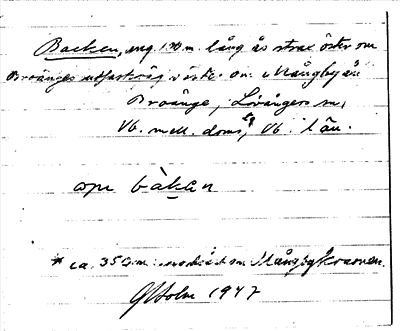 Backen, ung. 170 m. lång ås strax öster om
Broänges utfartsväg, väster om Mångbyån
Broänge, Lövångers sn,
Vb. mell. doms, Vb. län.
opu bàkən
* ca. 350 m. nordväst om Mångbykvarnen.
GHolm 1947